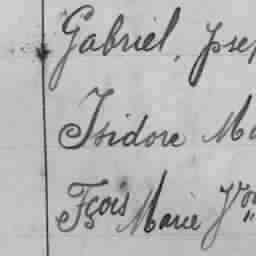 Gabriel, Jose
Isidore Ma
Fçois Marie Yo